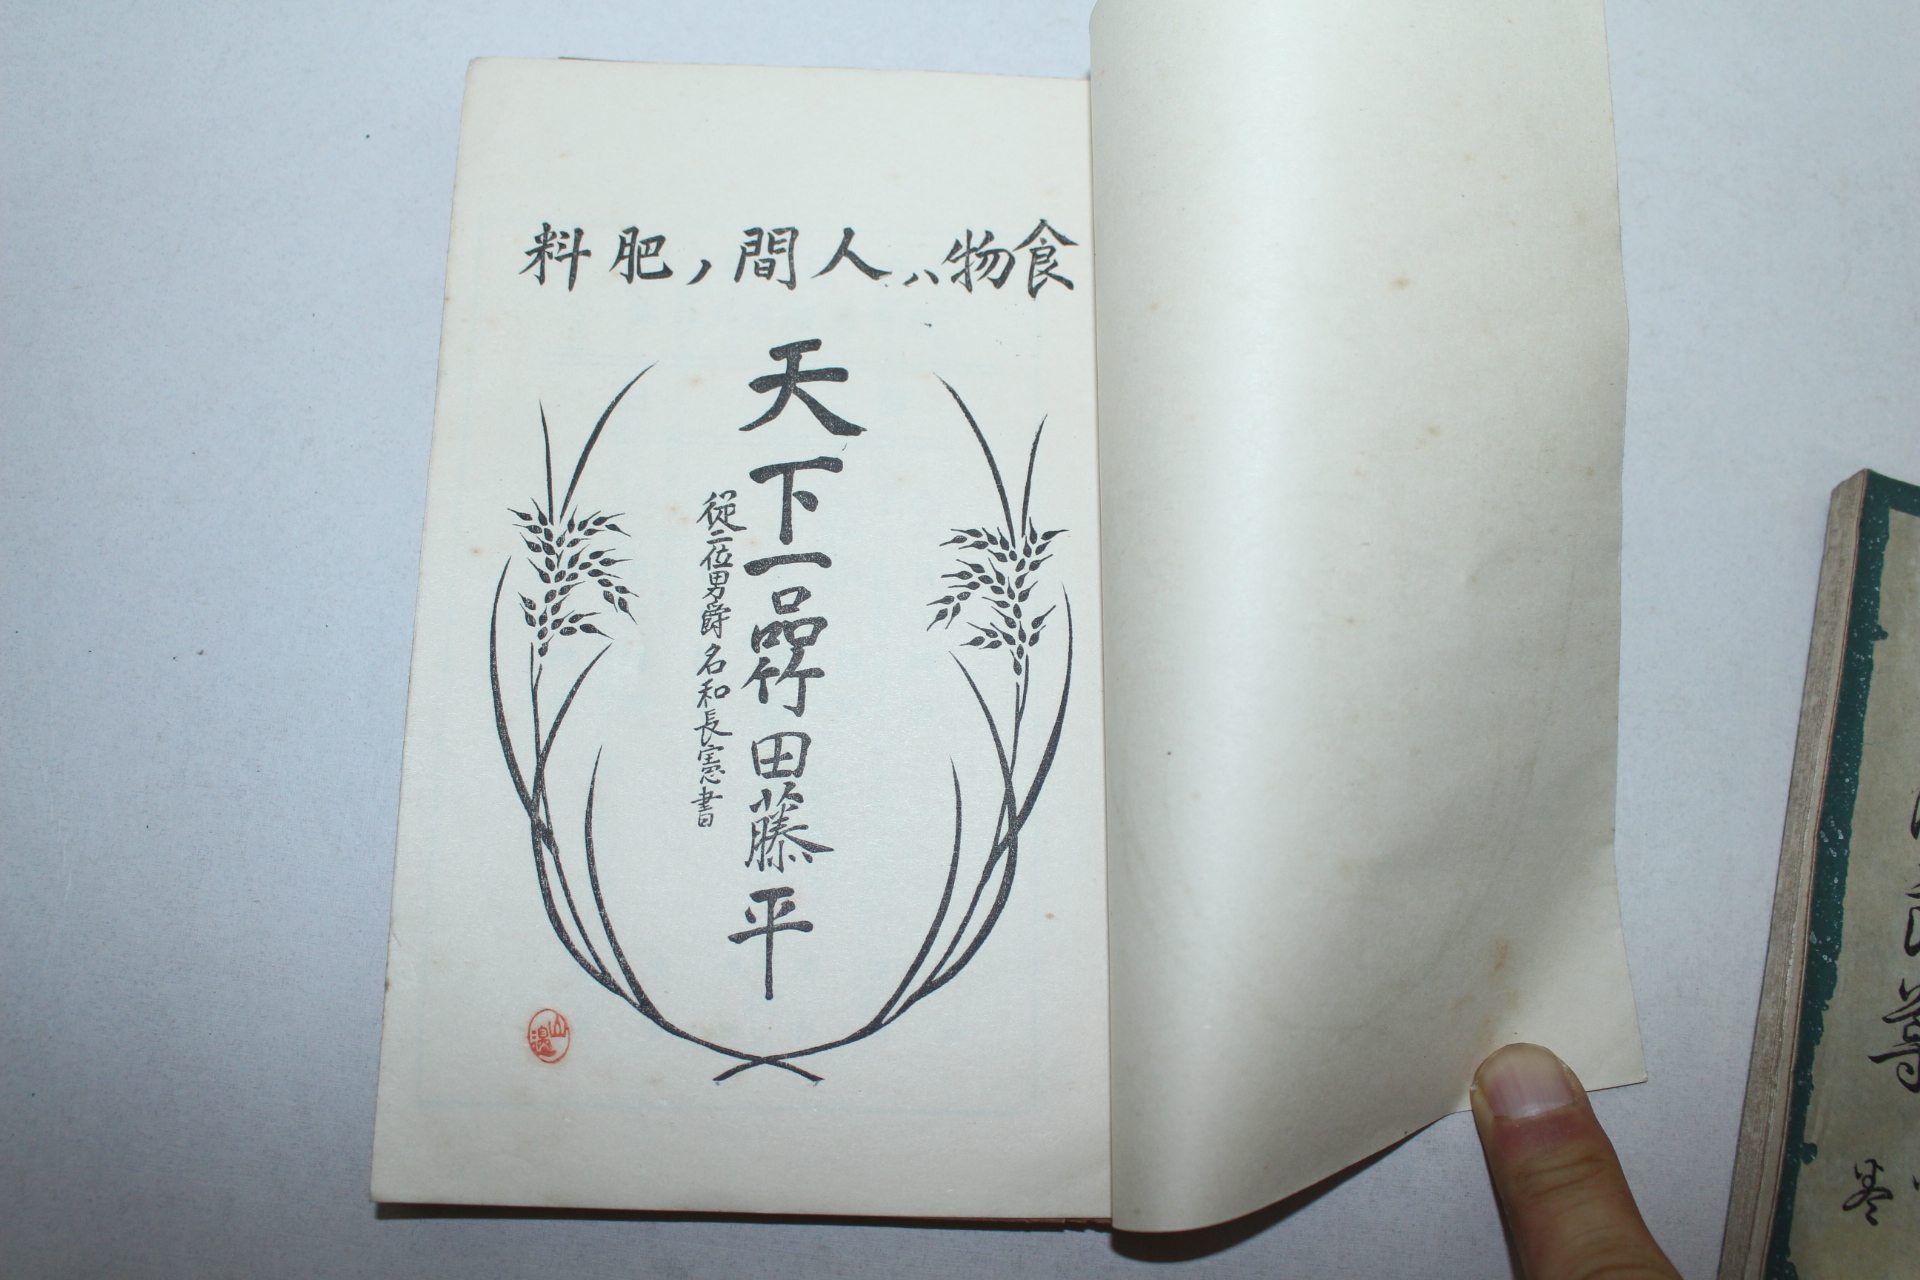 食物ハ人間ノ肥料
天下一品竹田藤平
從二位男爵名和長憲書